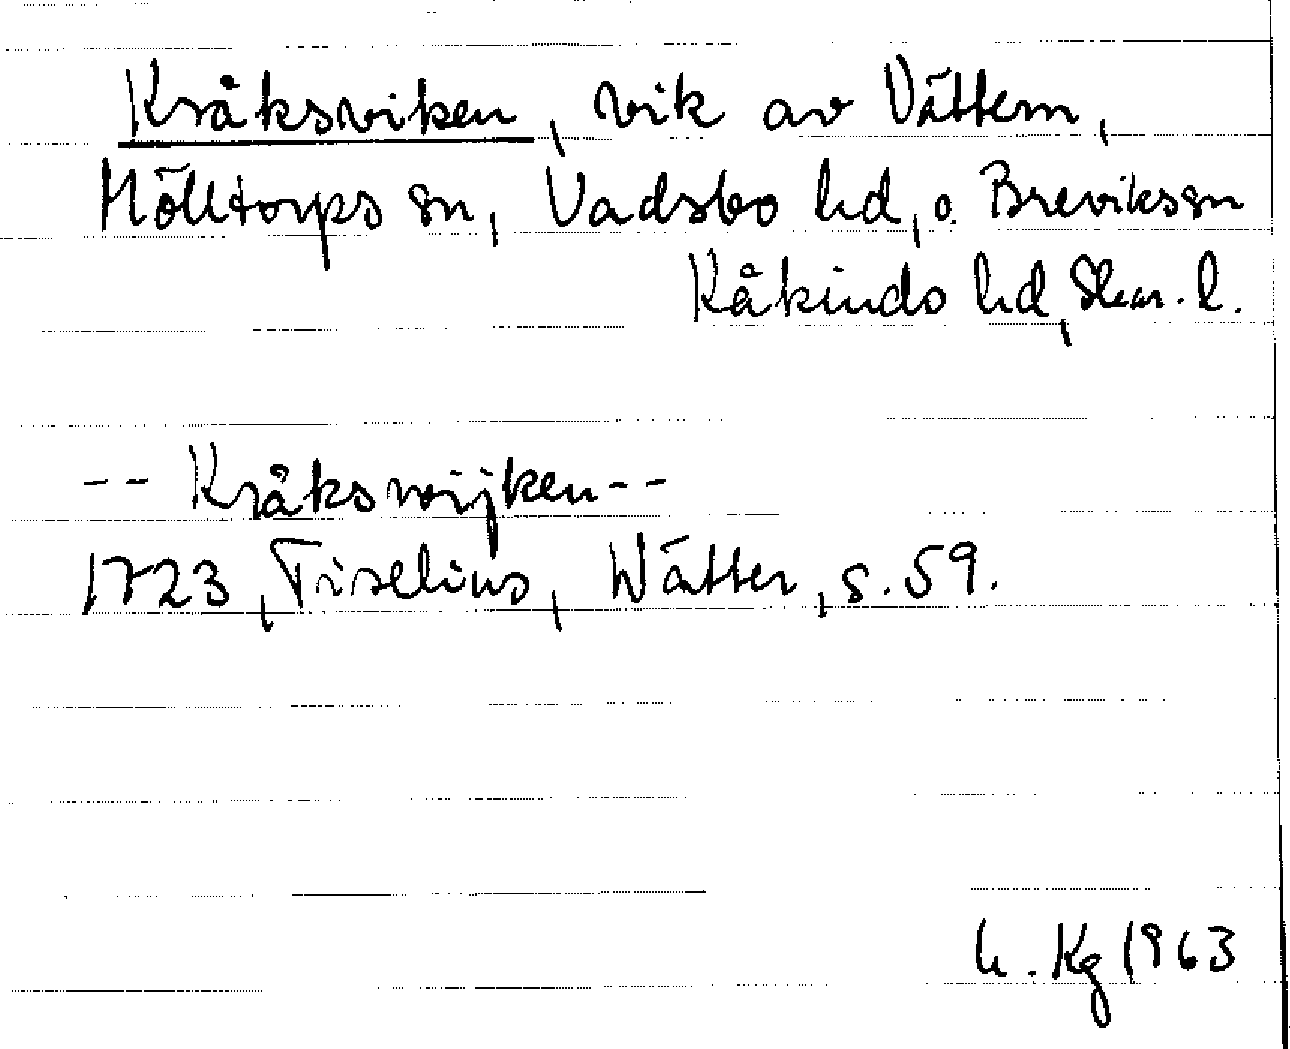 Kråksviken, vik av Vättern,
Mölltorps sn, Vadsbo hd, o. Brevikssn
Kåkinds hd, Skar. l.
-- Kråkswijken --
1723, Tiselius, Wätter, s. 59.
Kg 1963